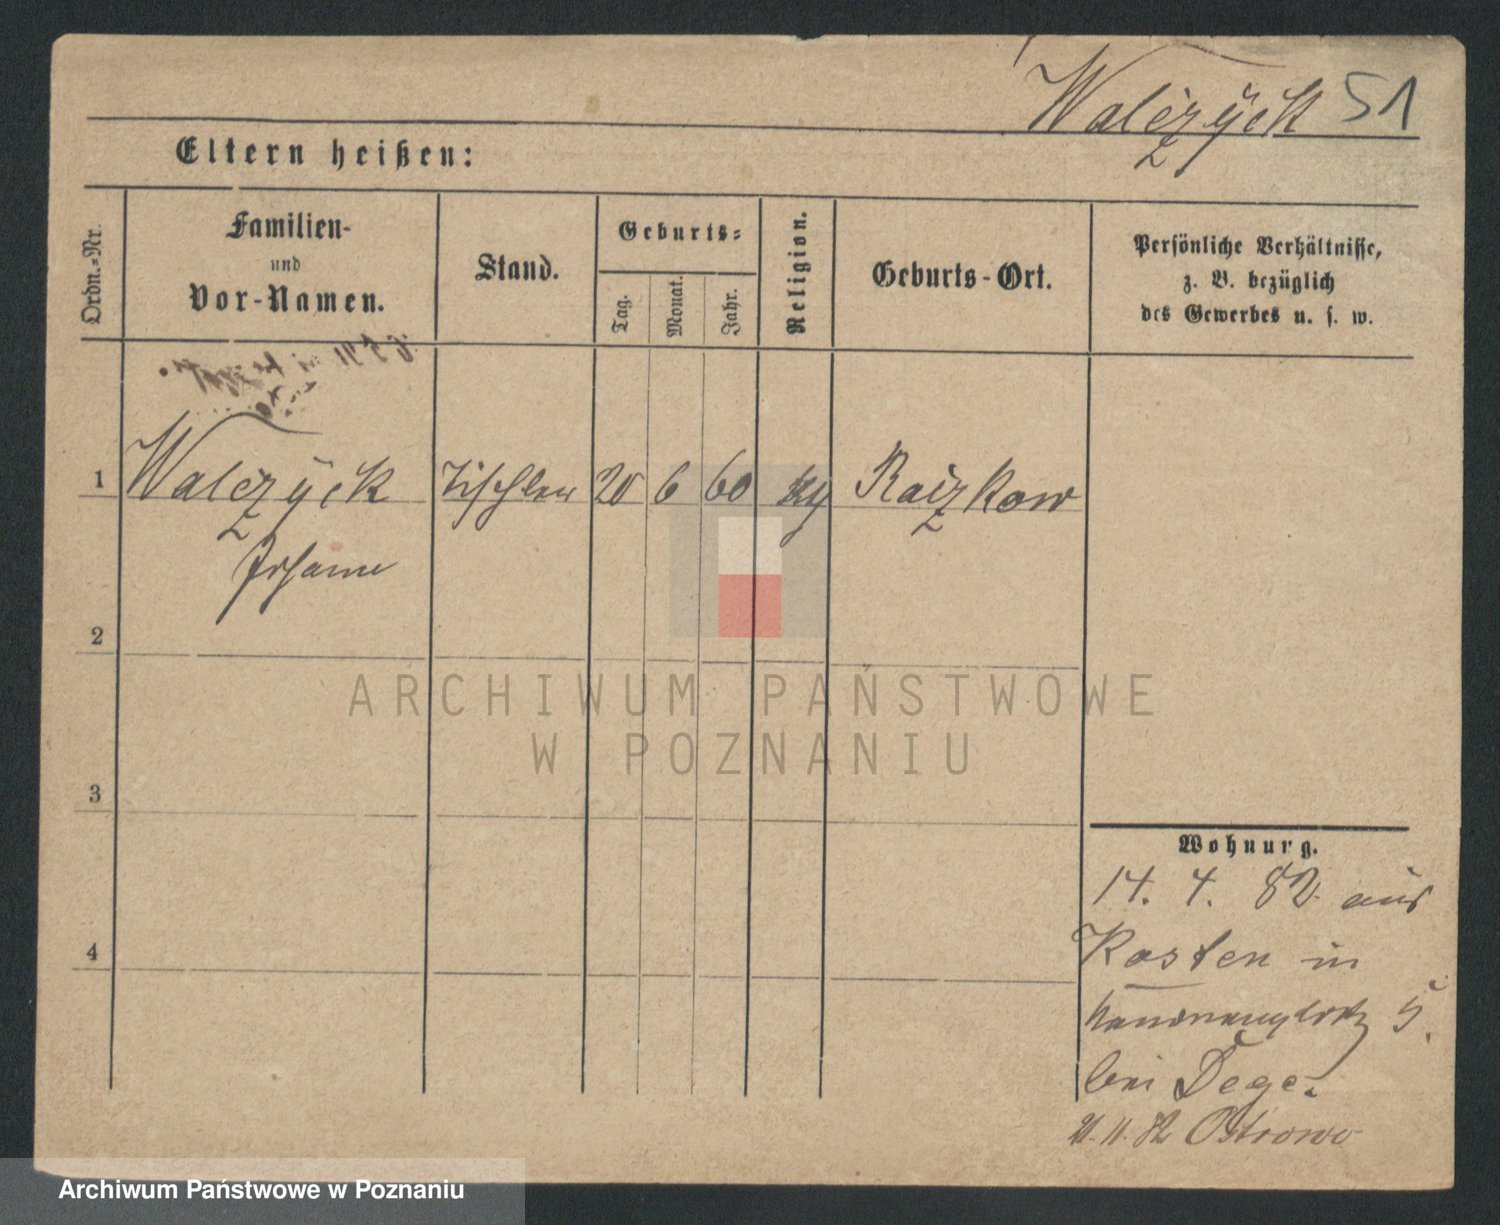 Walczyck 51
Eltern heißen:
Ordn.-Nr.
Familien-
und
Vor-Namen.
Stand.
Geburts-
Tag.
Monat.
Jahr.
Religion.
Geburts-Ort.
Persönliche Verhältnisse,
z. B. bezüglich
des Gewerbes u. s. w.
1 Walczyck Tischler 20 6 60 Raczkow
Johann
2
ARCHIWUM PAŃSTWOWE
W POZNANIU
3
4
Wohnung.
14. 4. 82 aus
Kosten in
5.
bei Dege.
21. 11. 82 Ostrowo
Archiwum Państwowe w Poznaniu